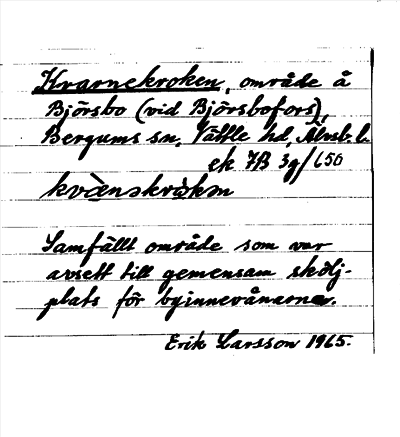 Kvarnekroken, område å
Björsbo (vid Björsbofors),
Bergums sn, Vättle hd, Älvsb. l.
ek 7B 3g/650
kvæ̀ɳəkrὼkən
Samfällt område som var
avsett till gemensam skölj-
plats för byinnevånarna.
Erik Larsson 1965.